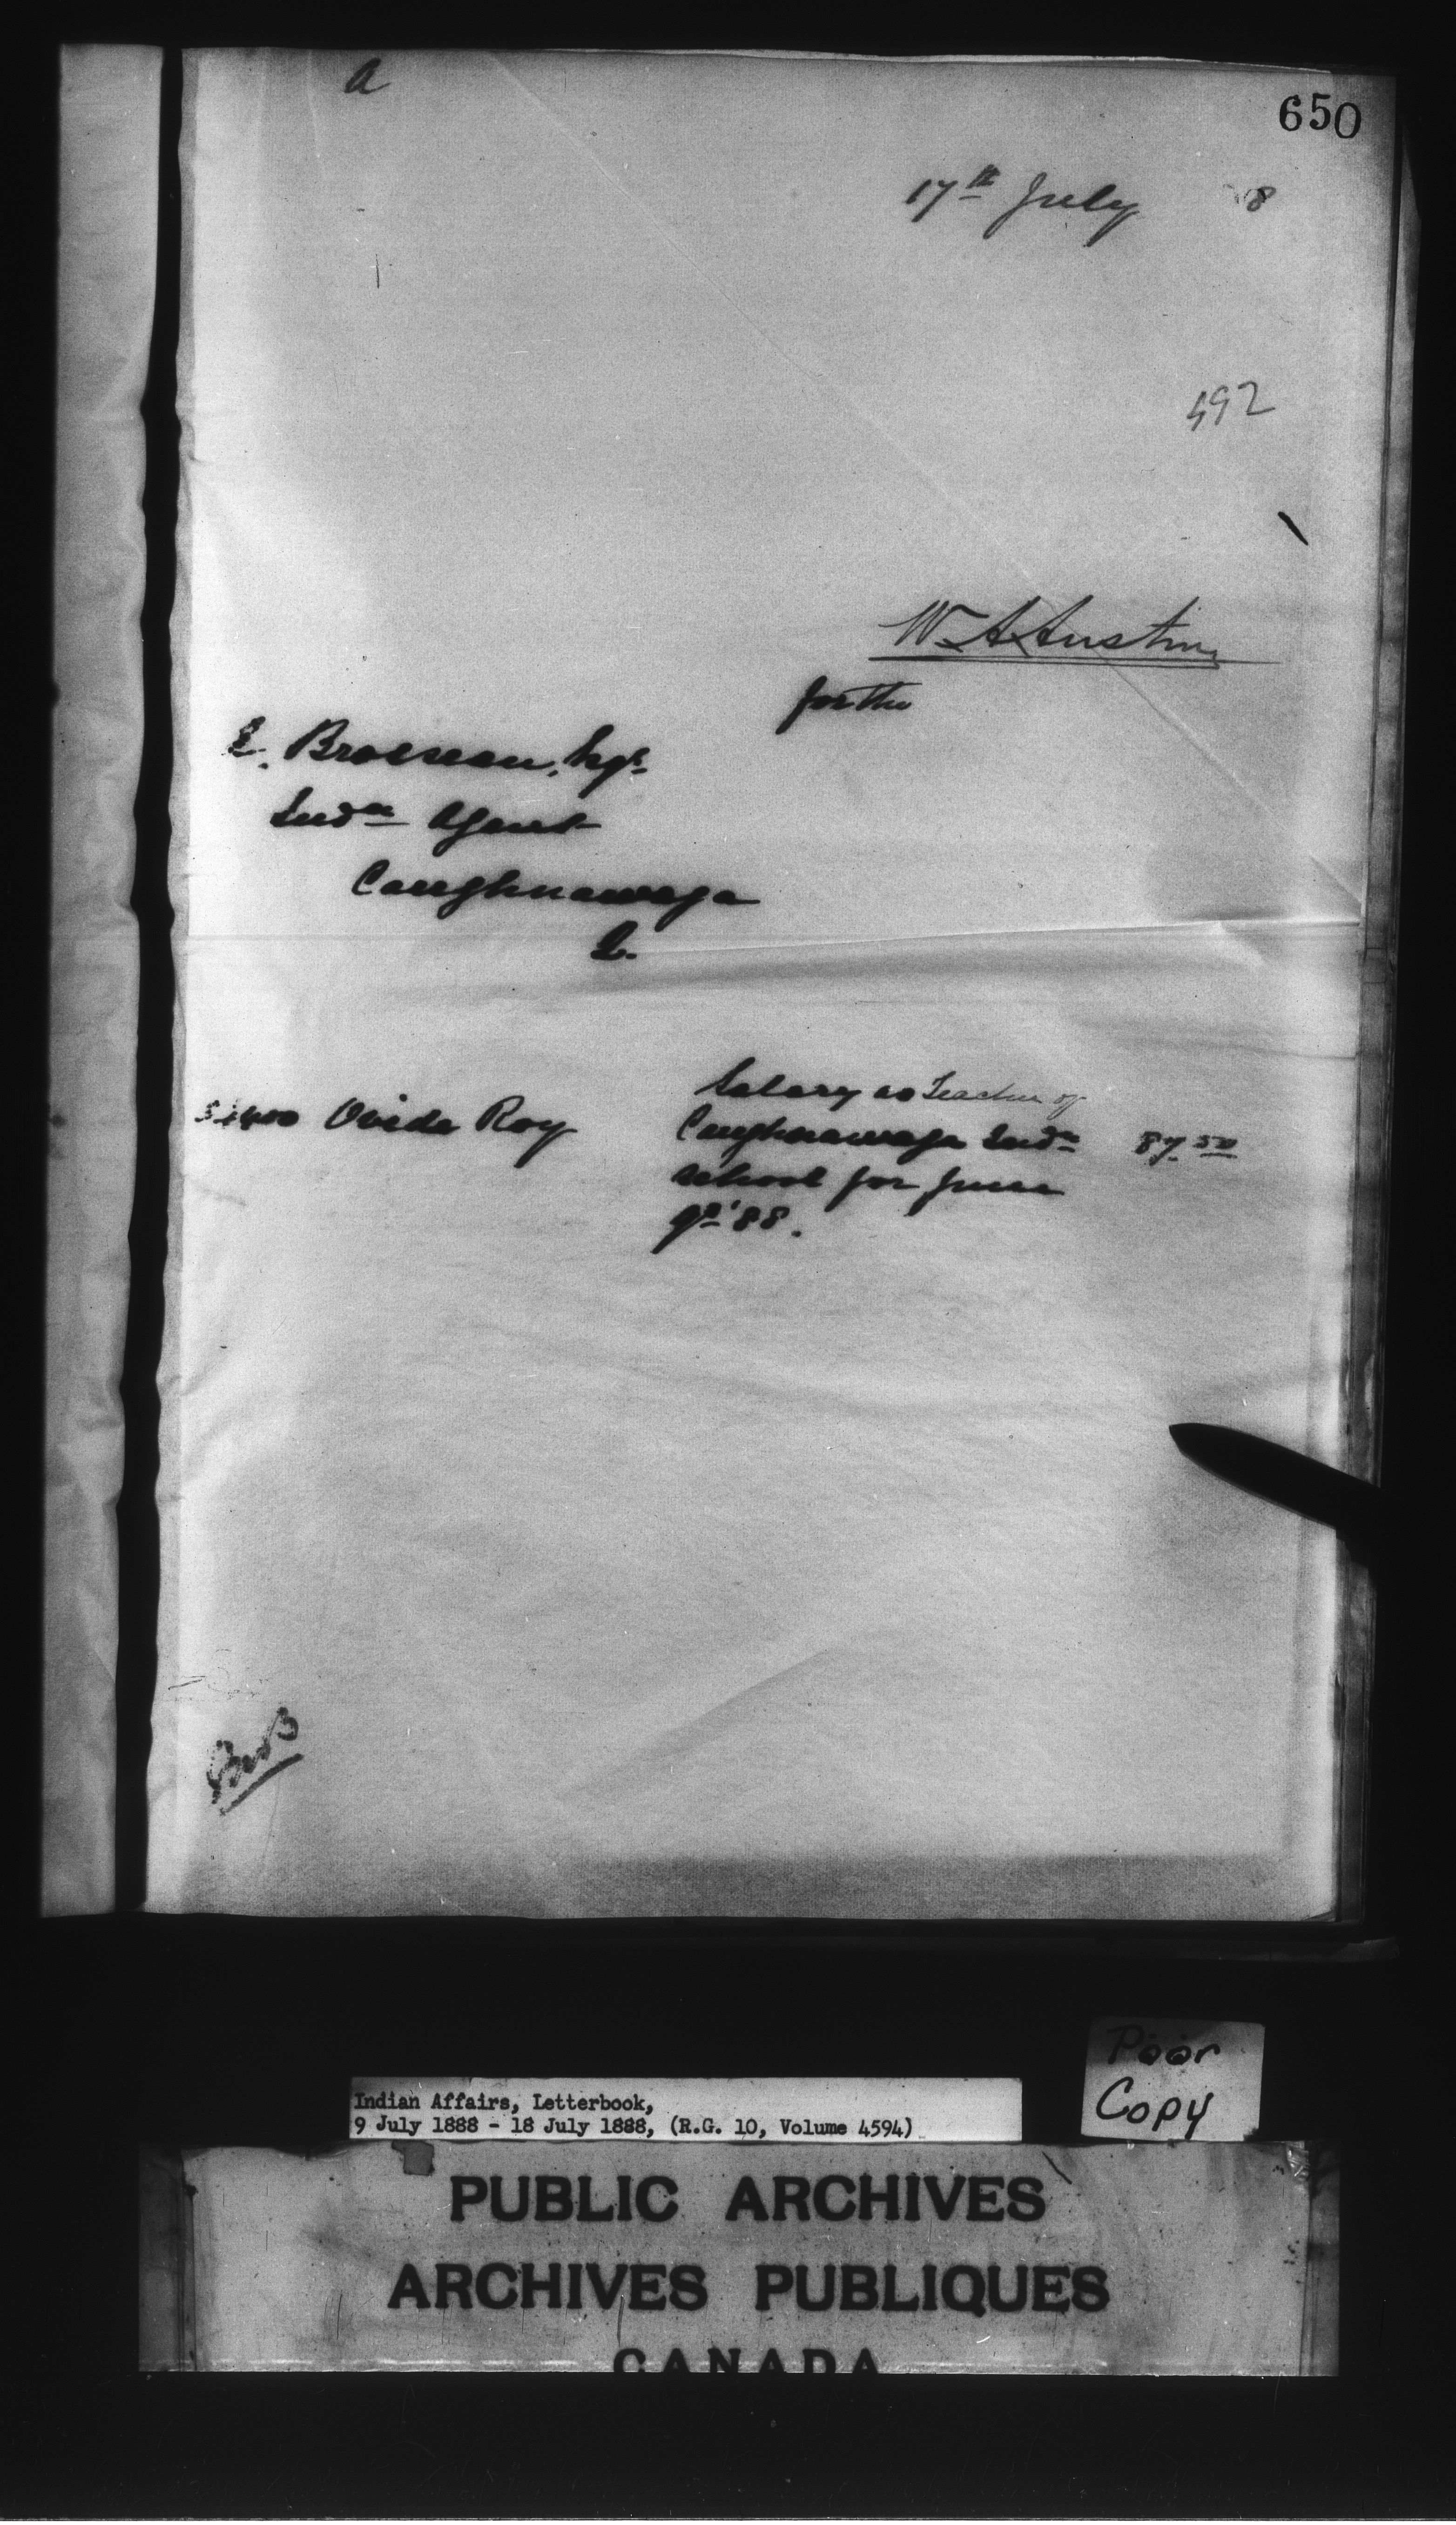 a
650
17th July 8
492
W A Austin
for the
E. Brosseau, Esqr.
Indn Agent
Caughnawaga
Q.
Ovide Roy
Salary as Teacher of
Caughnawaga Indn 87.50
school for June
qr '88.
Poor
Copy
Indian Affairs, Letterbook,
9 July 1888 - 18 July 1888, (R.G. 10, Volume 4594)
PUBLIC ARCHIVES
ARCHIVES PUBLIQUES
CANADA